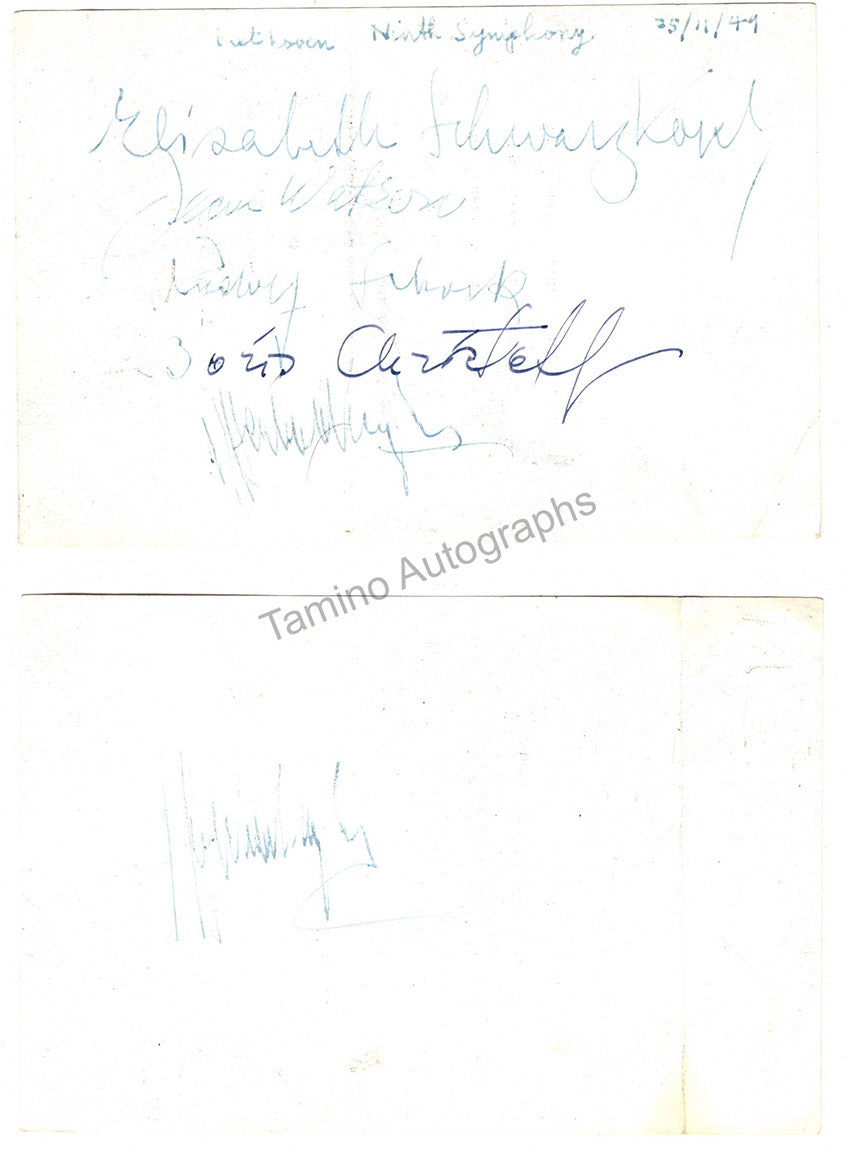 Beethoven Ninth Symphony. 25/11/49
Elisabeth Schwarzkopf
Jean Watson
Rudolf Schock
Boris Christoff
Tamino Autographs